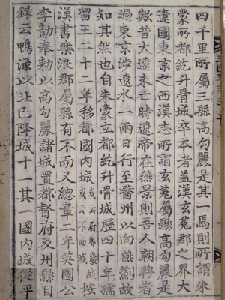 四千里所屬三縣高句麗是其一焉則所謂朱
蒙所都紇升骨城卒本者蓋漢玄菟郡之界大
遼國東京之西漢志所謂玄菟屬縣高句麗是
歟昔大遼未亡時遼帝在燕景則吾人朝聘者
過東京涉遼水一兩日行至醫州以向燕薊故
知其然也自朱蒙立都紇升骨城歷四十年孺
留王二十二年移都國內城或云尉耶巖城或云不而城按
漢書樂浪郡屬縣有不而又總章二年英國公
李勣奉勑以高句麗諸城置都督府及州縣目
錄云鴨淥以北已降城十一其一國內城從平